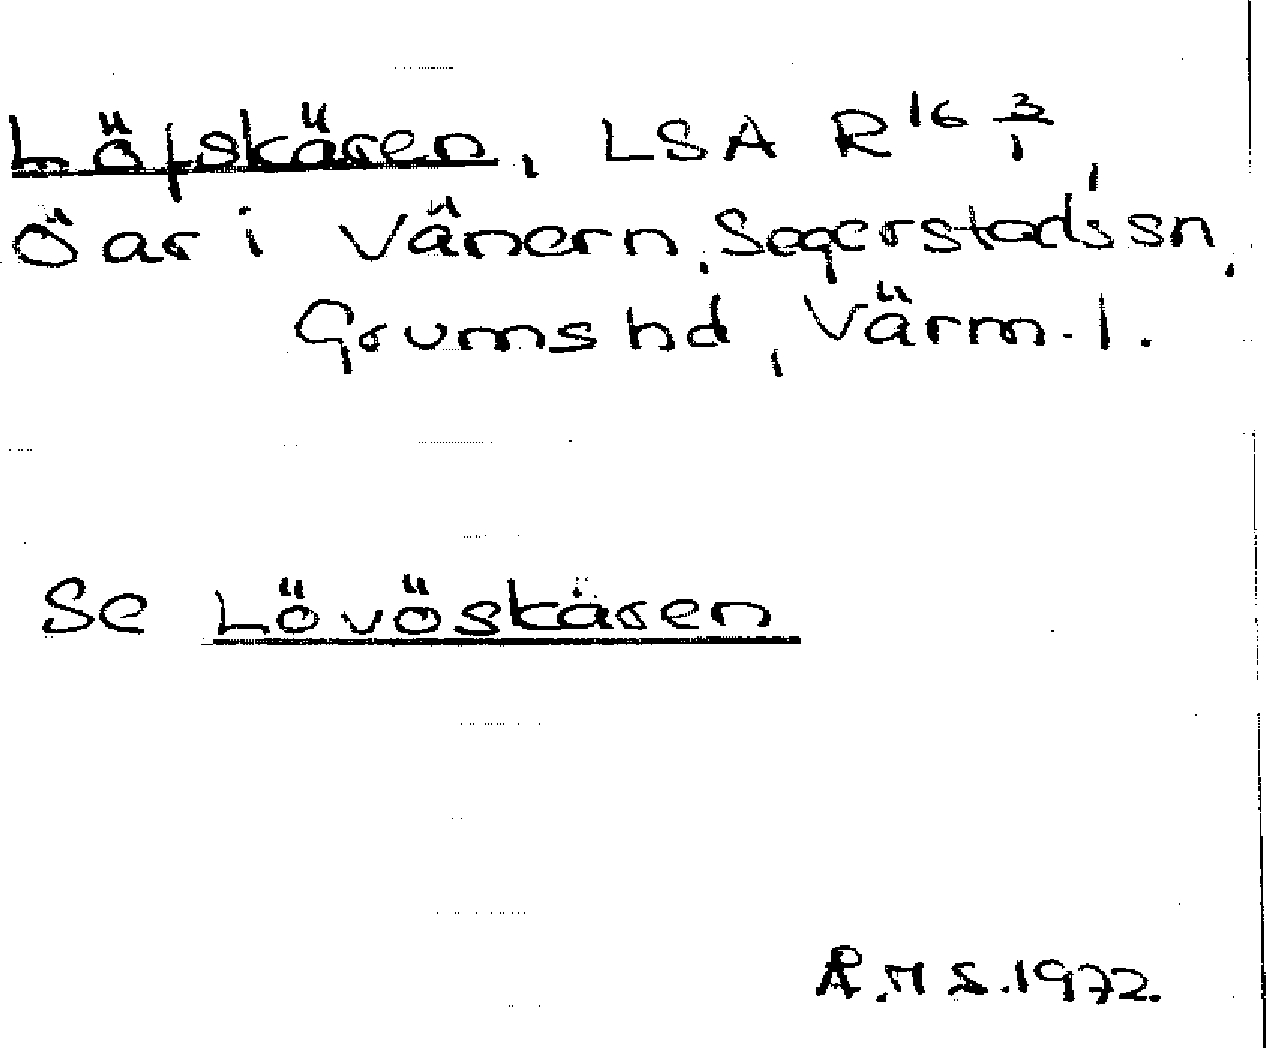 Löfskären, LSA R16 3/1,
Öar i Vänern, Segerstads sn,
Grums hd, Värm. l.
Se Lövöskären
R.M.S. 1972.